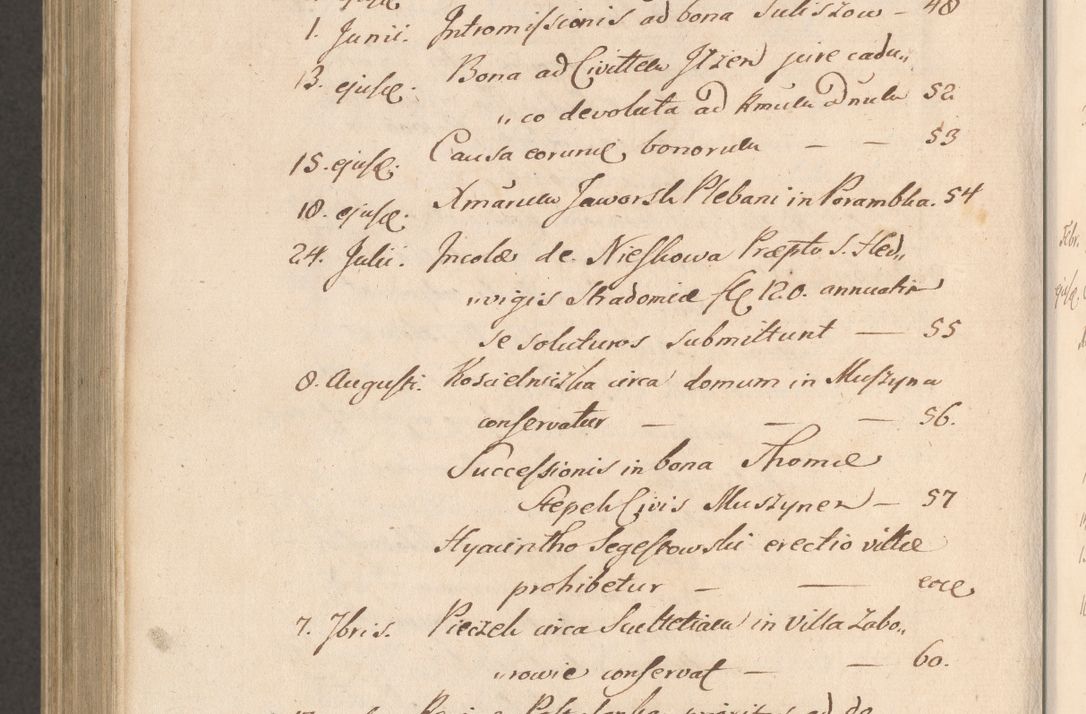 1. Junii. Intromissionis ad bona Suliszow – 48
13. ejusd. Bona ad Civittem Ilzen jure cadu„
„co devoluta ad Rmum Dnum 52
15. ejusd. Causa eorund bonorum – – 53
18. ejusd. Xmarum Jaworsk Plebani in Porambka. 54
24. Julii. Incolæ de Nieskowa Præpto S. Hed„
„wigis Stradomiæ fl 120. annuatim
se soluturos submittunt — 55
8. Augusti. Koscielniczka circa domum in Muszyna
conservatur – – — 56.
Successionis in bona Thomæ
Stepek Civis Muszynen – 57
Hyacintho Segestowski erectio villæ
prohibetur – — eod
7. 7bris. Pieczek circa Scultetiam in villa Zabo„
„rowie conservat – — 60.